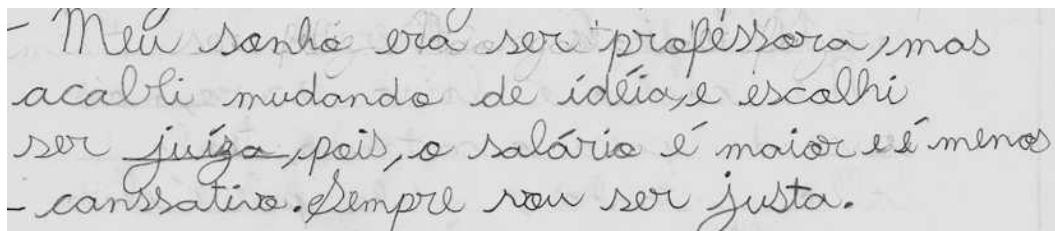 - Meu sonho era ser professora, mas
acabei mudando de idéia, e escolhi
ser juíza, pois, o salário é maior e é menos
- canssativo. Sempre vou ser justa.